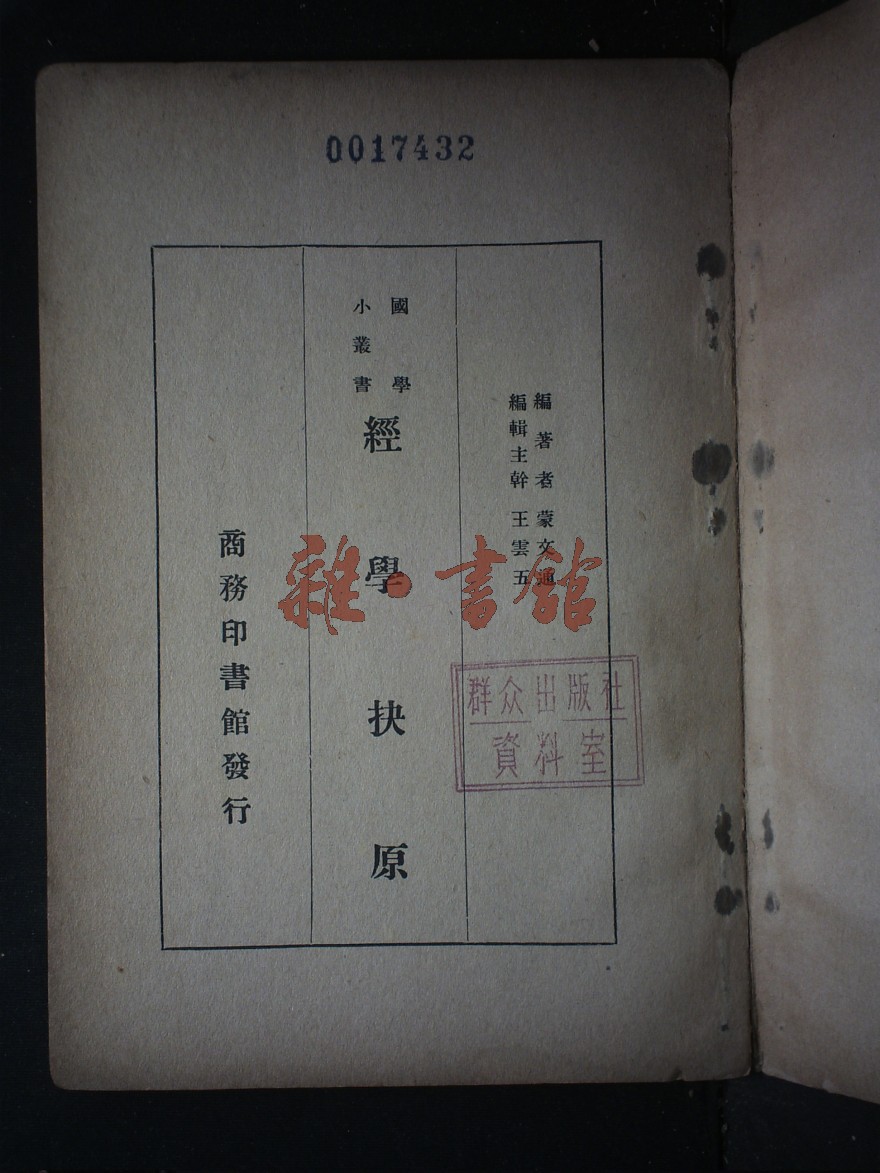 0017432
編著者 蒙文通
編輯主幹 王雲五
國學
小叢書
經學抉原
商務印書館發行
雜·書館
群众出版社
資料室